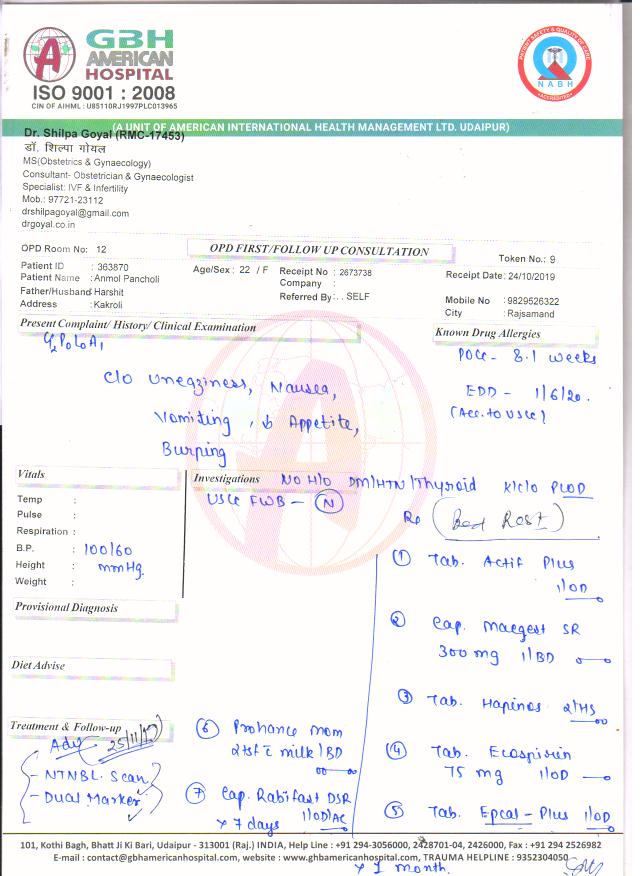 GBH
AMERICAN
HOSPITAL
ISO 9001 : 2008
CIN OF AIHML : U85110RJ1997PLC013965
PATIENT SAFETY & QUALITY OF CARE
NABH
ACCREDITED
(A UNIT OF AMERICAN INTERNATIONAL HEALTH MANAGEMENT LTD. UDAIPUR)
Dr. Shilpa Goyal (RMC-17453)
डॉ. शिल्पा गोयल
MS(Obstetrics & Gynaecology)
Consultant- Obstetrician & Gynaecologist
Specialist: IVF & Infertility
Mob.: 97721-23112
drshilpagoyal@gmail.com
drgoyal.co.in
OPD Room No: 12
OPD FIRST/FOLLOW UP CONSULTATION
Token No.: 9
Patient ID : 363870
Age/Sex : 22 / F
Receipt No : 2673738
Receipt Date: 24/10/2019
Patient Name : Anmol Pancholi
Company :
Father/Husband Harshit
Referred By: . . SELF
Mobile No : 9829526322
Address : Kakroli
City : Rajsamand
Present Complaint/ History/ Clinical Examination
Known Drug Allergies
G2P0L0A1
POG - 8.1 weeks
C/o Uneaziness, Nausea,
Vomiting, ↓ Appetite,
Burping
EDD - 1/6/20.
(Acc. to USG)
Vitals
Temp :
Pulse :
Respiration :
B.P. : 100/60
mmHg.
Height :
Weight :
Investigations
NO H/o DM/HTN/Thyroid K/c/o PCOD
USG FWB - (N)
Rx (Bed Rest)
① Tab. Actif Plus
1/OD
② Cap. Maegest SR
300 mg 1/BD
③ Tab. Hapinos 2/HS
④ Tab. Ecospirin
75 mg 1/OD
⑤ Tab. Epcal-Plus 1/OD
Provisional Diagnosis
Diet Advise
Treatment & Follow-up
Adv 25/11/19
- NTNBL Scan
- Dual Marker
⑥ Prohance mom
2tsf c̄ milk/BD
⑦ Cap. Rabifast DSR
1/OD/AC
x 7 days
101, Kothi Bagh, Bhatt Ji Ki Bari, Udaipur - 313001 (Raj.) INDIA, Help Line : +91 294-3056000, 2428701-04, 2426000, Fax : +91 294 2526982
E-mail : contact@gbhamericanhospital.com, website : www.gbhamericanhospital.com, TRAUMA HELPLINE : 9352304050
x 1 month.